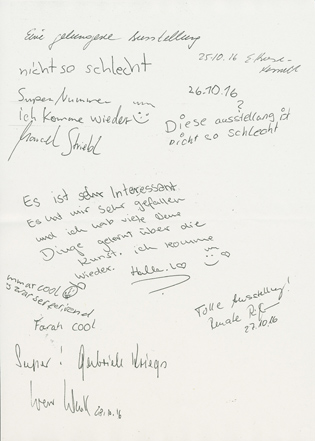 Eine gelungene Ausstellung
25.10.16
nicht so schlecht
26.10.16
?
Super Nummer
Ich Komme wieder
Diese ausstellung ist
nicht so schlecht
Marcel
Es ist sehr Interessant
Es hat mir sehr gefallen
und ich hab viele neue
Dinge gelernt über die
Kunst. ich komme
wieder.
cool
Farah cool
Tolle Ausstellung!
Renate
27.10.16
Super! Gabriele Kriegs